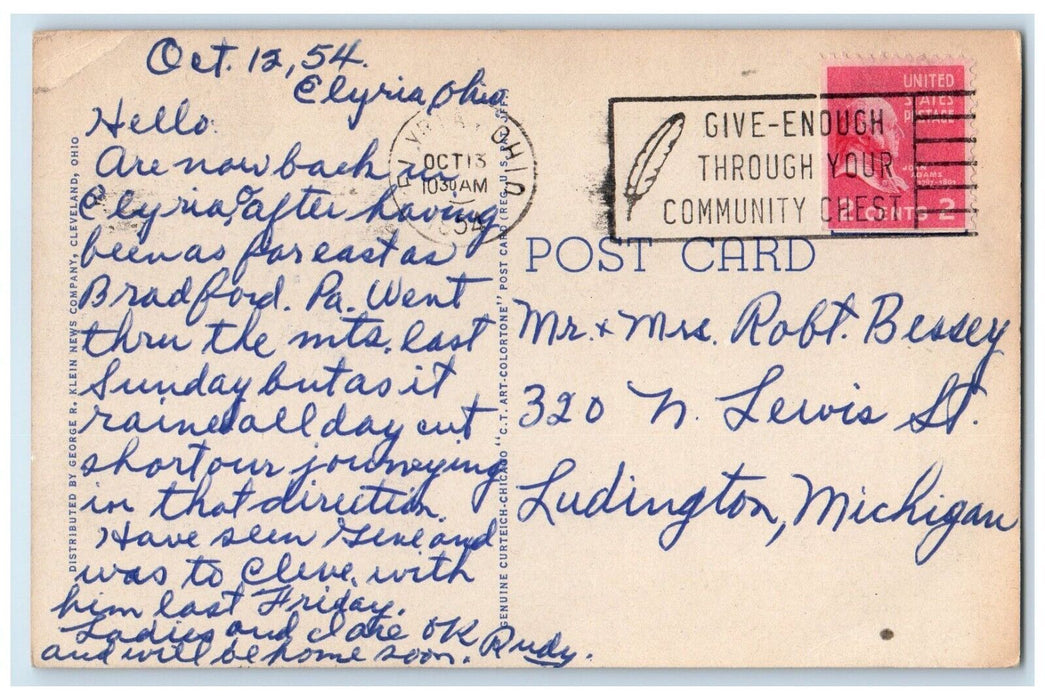 Oct. 12, 54.
Elyria, Ohio
Hello.
Are now back in
Elyria, O. after having
been as far east as
Bradford. Pa. Went
thru the mts. last
Sunday but as it
rained all day cut
short our journeying
in that direction.
Have seen Gene and
was to Cleve. with
him last Friday.
Ladies and I are OK
and will be home soon. Rudy.
DISTRIBUTED BY GEORGE R. KLEIN NEWS COMPANY, CLEVELAND, OHIO
GENUINE CURTEICH-CHICAGO "C. T. ART-COLORTONE" POST CARD (REG. U. S. PAT. OFF.)
OHIO
OCT 13
10 30 AM
1954
GIVE-ENOUGH
THROUGH YOUR
COMMUNITY CHEST
UNITED
STATES
POSTAGE
JOHN
ADAMS
2 CENTS 2
POST CARD
Mr. + Mrs. Robt. Bessey
320 N. Lewis St.
Ludington, Michigan